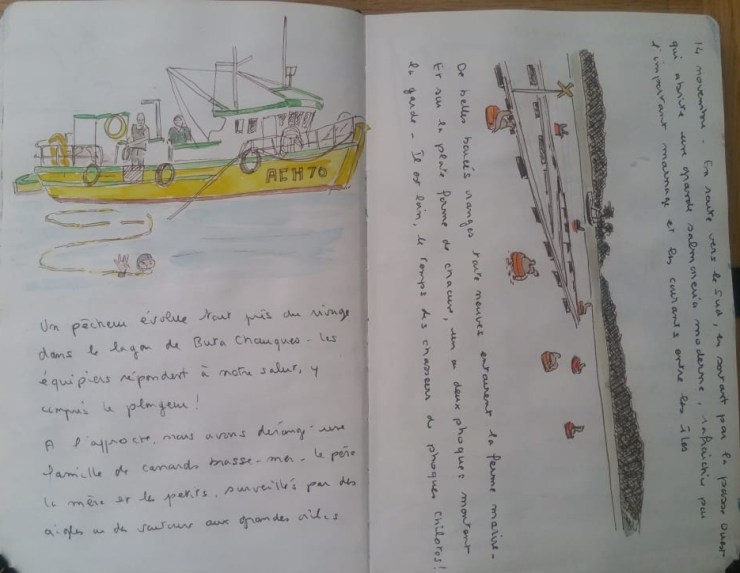 AEH 70
Un pêcheur évolue tout près du rivage
dans le lagon de Buta Chauques - les
équipiers répondent à notre salut, y
compris le plongeur !
A l'approche, nous avons dérangé une
famille de canards brasse-mer - le père
la mère et les petits, surveillés par des
aigles ou des vautours aux grandes ailes
14 novembre - En route vers le sud, en sortant par la passe Ouest
qui abrite une grande salmoneria moderne, rafraîchie par
l'important marnage et les courants entre les îles
De belles bouées oranges toutes neuves entourent la ferme marine -
Et sur la plate forme de chacune, un ou deux phoques montent
la garde - Il est loin, le temps des chasseurs de phoques chilotes !